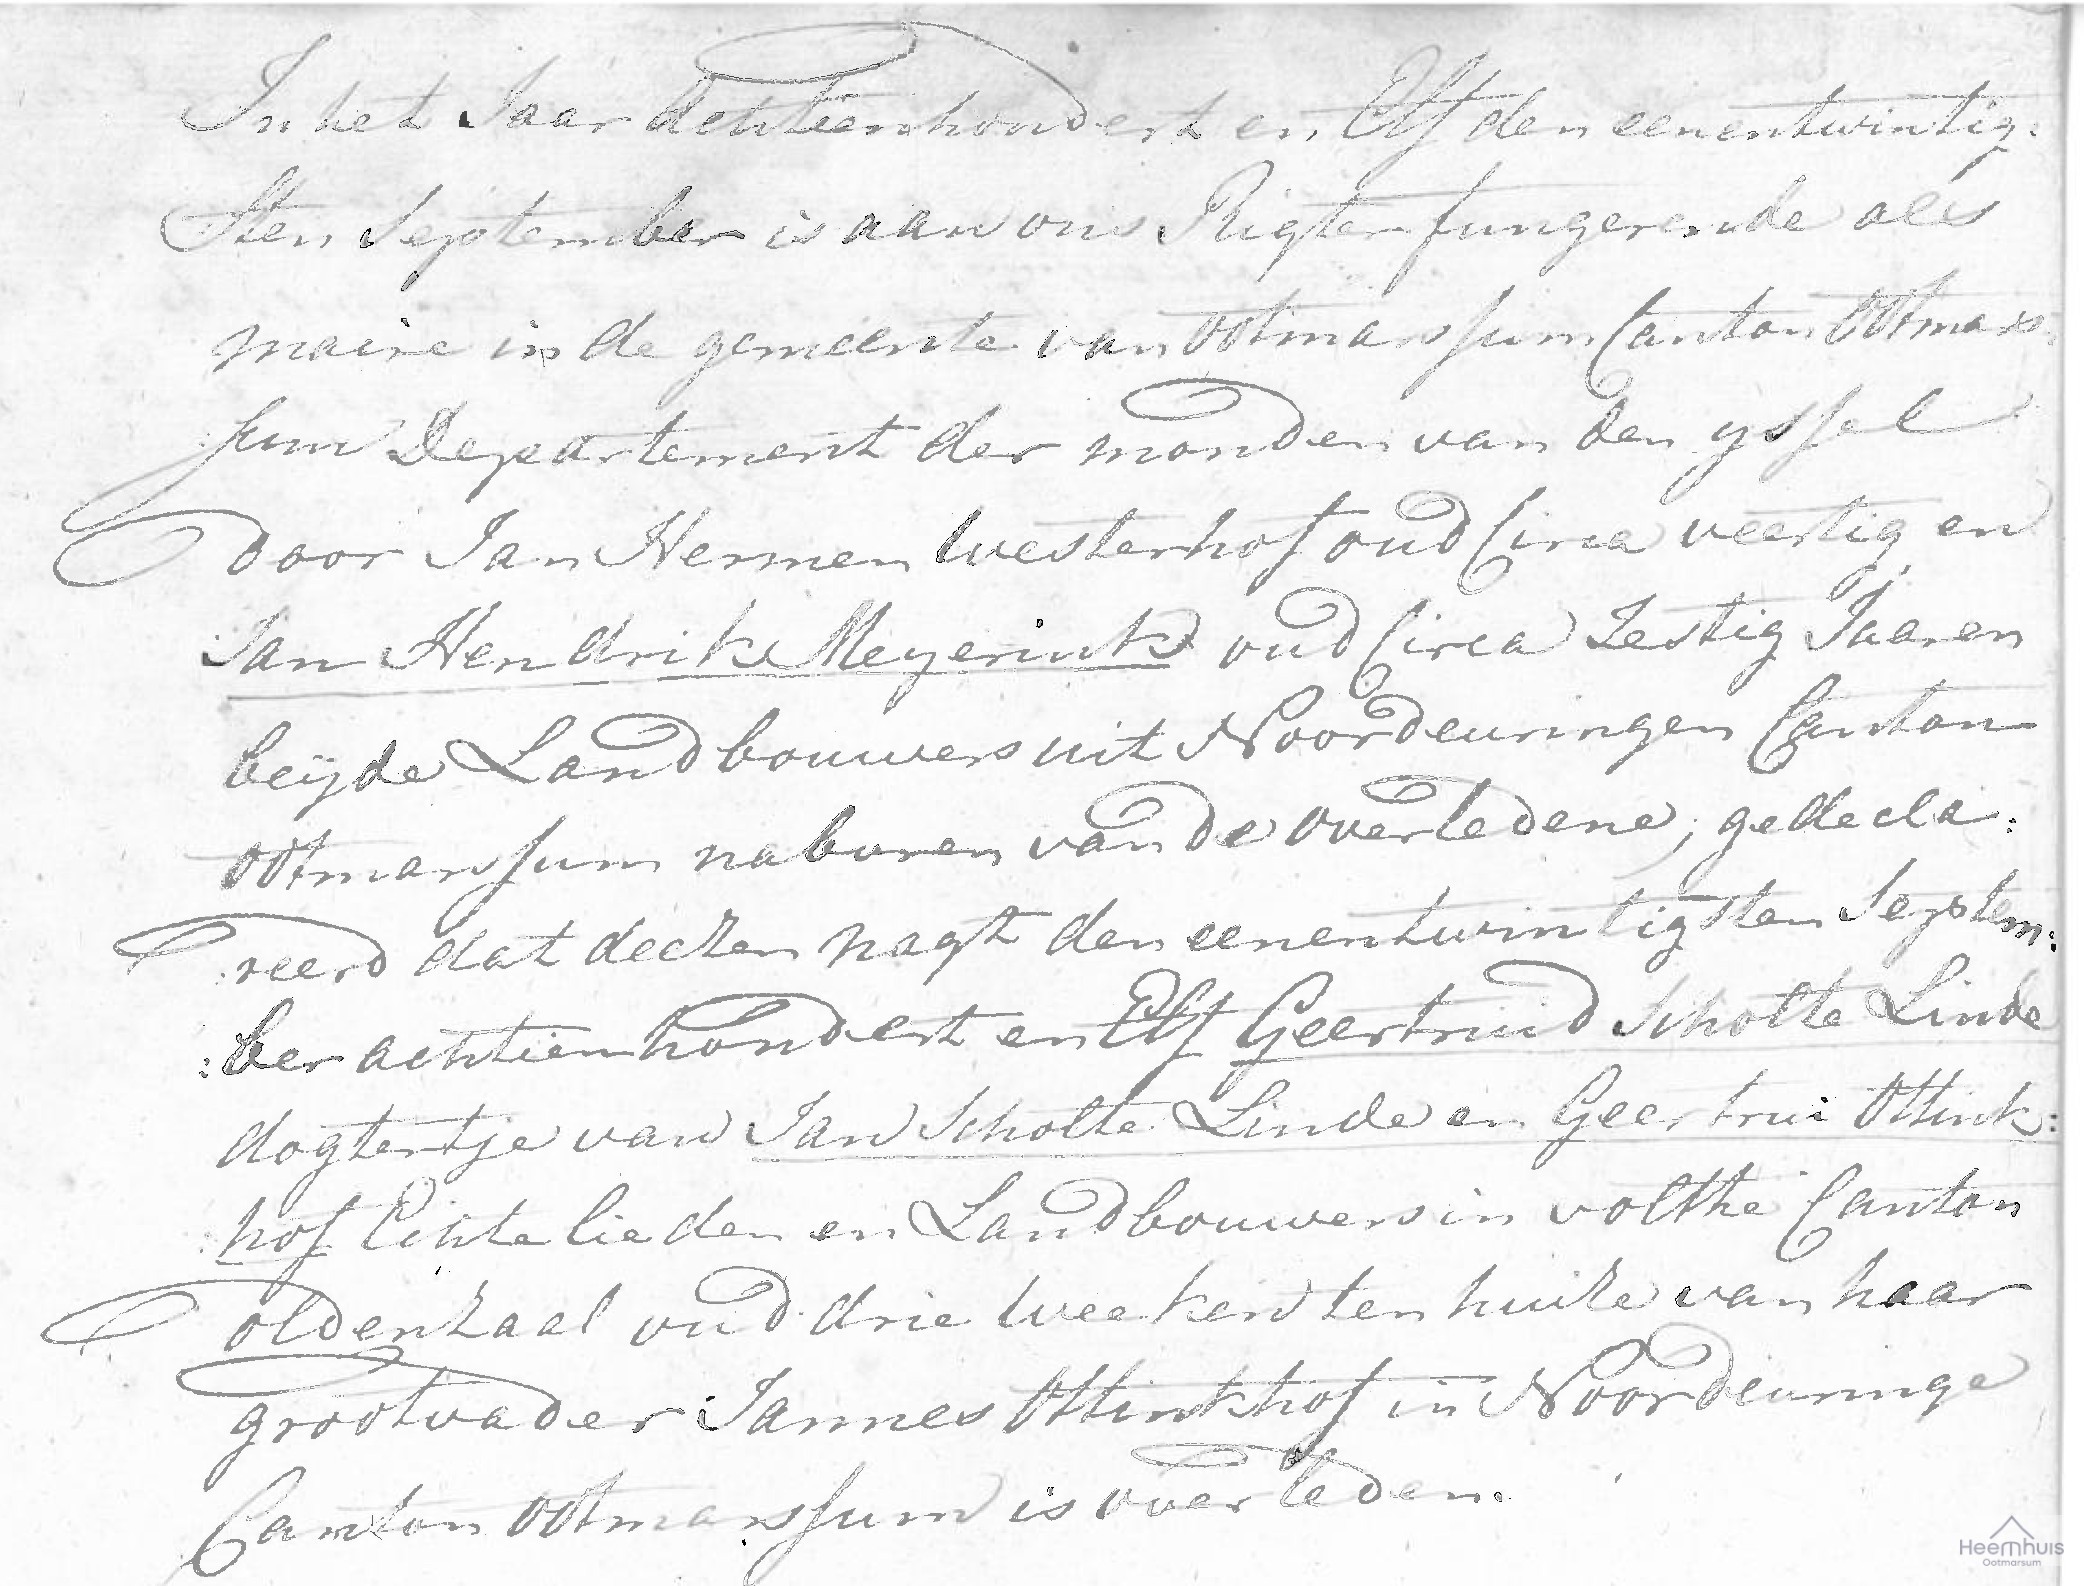 In het Jaar Achtteenhondert en Elf den eenentwintig:
Sten September is aan ons Rigter fungerende als
maire in de gemeente van Ootmarssum Canton Ootmars
sum Departement der monden van den yssel
door Jan Hermen Westerhof oud Circa veertig en
Jan Hendrik Meyerink oud Circa Zestig Jaaren
beijde Landbouwers uit Noordeuringen Canton
Ootmarssum naburen van de overledene, gedecla:
reerd dat deezen nagt den eenentwintigsten Septem:
:ber achttienhondert en Elf Geertruid Scholte Linde
dogtertje van Jan Scholte Linde en Geertrui Ottink:
hof Echtelieden en Landbouwers in volthe Canton
oldenzaal oud drie Weeken ten huize van haar
grootvader Jannes Ottinkhof in Noordeuringe
Canton Ootmarssum is overleden.
Heemhuis
Ootmarsum